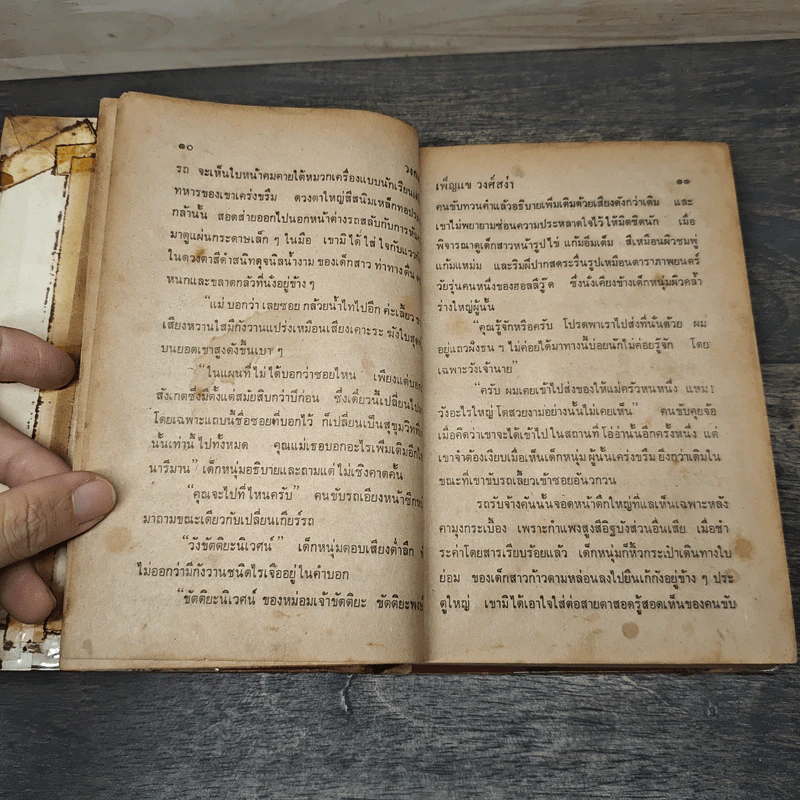 ๑๐
รถ จะเห็นใบหน้าคมคายใต้หมวกเครื่องแบบนักเรียน
ทหารของเขาเคร่งขรึม ดวงตาใหญ่สีสนิมเหล็ก
กล้านั้น สอดส่ายออกไปนอกหน้าต่างรถสลับกับการ
มาดูแผ่นกระดาษเล็ก ๆ ในมือ เขามิได้ใส่ใจกับ
ในดวงตาสีดำสนิทดุจนิลน้ำงาม ของเด็กสาว ท่าทาง
หนกและขลาดกลัวที่นั่งอยู่ข้าง ๆ
“แม่ บอกว่า เลยซอย กล้วยน้ำไทไปอีก ค่ะเลี้ยว
เสียงหวานใสมีกังวานแปร่งเหมือนเสียงเคาะระฆังใบ
บนยอดเขาสูงดังขึ้นเบา ๆ
“ในแผนที่ไม่ได้บอกว่าซอยไหน เพียงแต่บอก
สังเกตซึ่งมีตั้งแต่สมัยสิบกว่าปีก่อน ซึ่งเดี๋ยวนี้เปลี่ยนไป
โดยเฉพาะแถบนี้ชื่อซอยที่บอกไว้ ก็เปลี่ยนเป็นสุขุมวิท
นั้นเท่านี้ไปทั้งหมด คุณแม่เธอบอกอะไรเพิ่มเติมอีก
นารีมาน” เด็กหนุ่มอธิบายและถามแต่ไม่เชิงคาดคั้น
“คุณจะไปที่ไหนครับ” คนขับรถเอียงหน้าซีก
มาถามขณะเดียวกับเปลี่ยนเกียร์รถ
“วังขัตติยะนิเวศน์” เด็กหนุ่มตอบเสียงต่ำลึก
ไม่ออกว่ามีกังวานชนิดไรเจืออยู่ในคำบอก
“ขัตติยะนิเวศน์ ของหม่อมเจ้าขัตติยะ ขัตติยะพงษ์
เพ็ญแข วงศ์สง่า ๑๑
คนขับทวนคำแล้วอธิบายเพิ่มเติมด้วยเสียงดังกว่าเดิม และ
เขาไม่พยายามซ่อนความประหลาดใจไว้ให้มิดชิดนัก เมื่อ
พิจารณาดูเด็กสาวหน้ารูปไข่ แก้มอิ่มเต็ม สีเหมือนผิวชมพู่
แก้มแหม่ม และริมฝีปากสดระรื่นรูปเหมือนดาราภาพยนตร์
วัยรุ่นคนหนึ่งของฮอลลีวู๊ด ซึ่งนั่งเคียงข้างเด็กหนุ่มผิวคล้ำ
ร่างใหญ่ผู้นั้น
“คุณรู้จักหรือครับ โปรดพาเราไปส่งที่นั่นด้วย ผม
อยู่แถวฝั่งธน ฯ ไม่ค่อยได้มาทางนี้บ่อยนักไม่ค่อยรู้จัก โดย
เฉพาะวังเจ้านาย”
“ครับ ผมเคยเข้าไปส่งของให้แม่ครัวหนหนึ่ง แหม!
วังอะไรใหญ่โตสวยงามอย่างนั้นไม่เคยเห็น” คนขับคุยจ้อ
เมื่อคิดว่าเขาจะได้เข้าไปในสถานที่โอ่อ่านั้นอีกครั้งหนึ่ง แต่
เขาจำต้องเงียบเมื่อเห็นเด็กหนุ่มผู้นั้นเคร่งขรึมยิ่งกว่าเดิมใน
ขณะที่เขาขับรถเลี้ยวเข้าซอยอันวกวน
รถรับจ้างคันนั้นจอดหน้าตึกใหญ่ที่แลเห็นเฉพาะหลัง
คามุงกระเบื้อง เพราะกำแพงสูงสีอิฐบังส่วนอื่นเสีย เมื่อชำ
ระค่าโดยสารเรียบร้อยแล้ว เด็กหนุ่มก็หิ้วกระเป๋าเดินทางใบ
ย่อม ของเด็กสาวก้าวตามหล่อนลงไปยืนเก้กังอยู่ข้าง ๆ ประ
ตูใหญ่ เขามิได้เอาใจใส่ต่อสายตาสอดรู้สอดเห็นของคนขับ